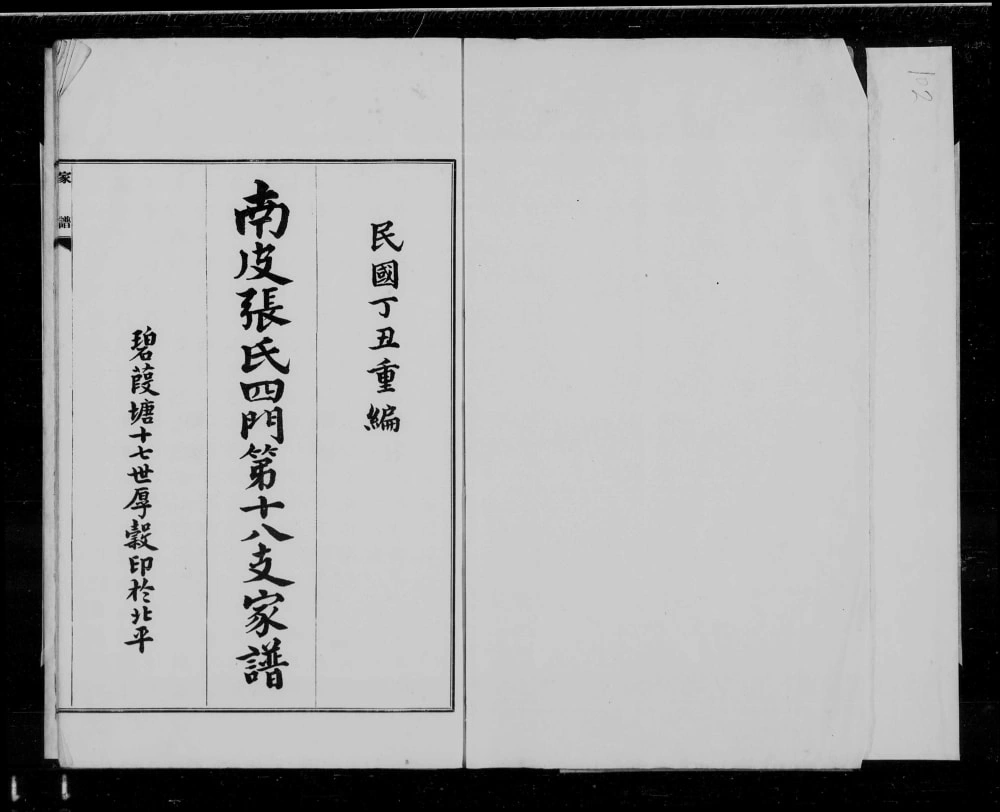 102
民國丁丑重編
南皮張氏四門第十八支家譜
碧葭塘十七世厚穀印於北平
家譜